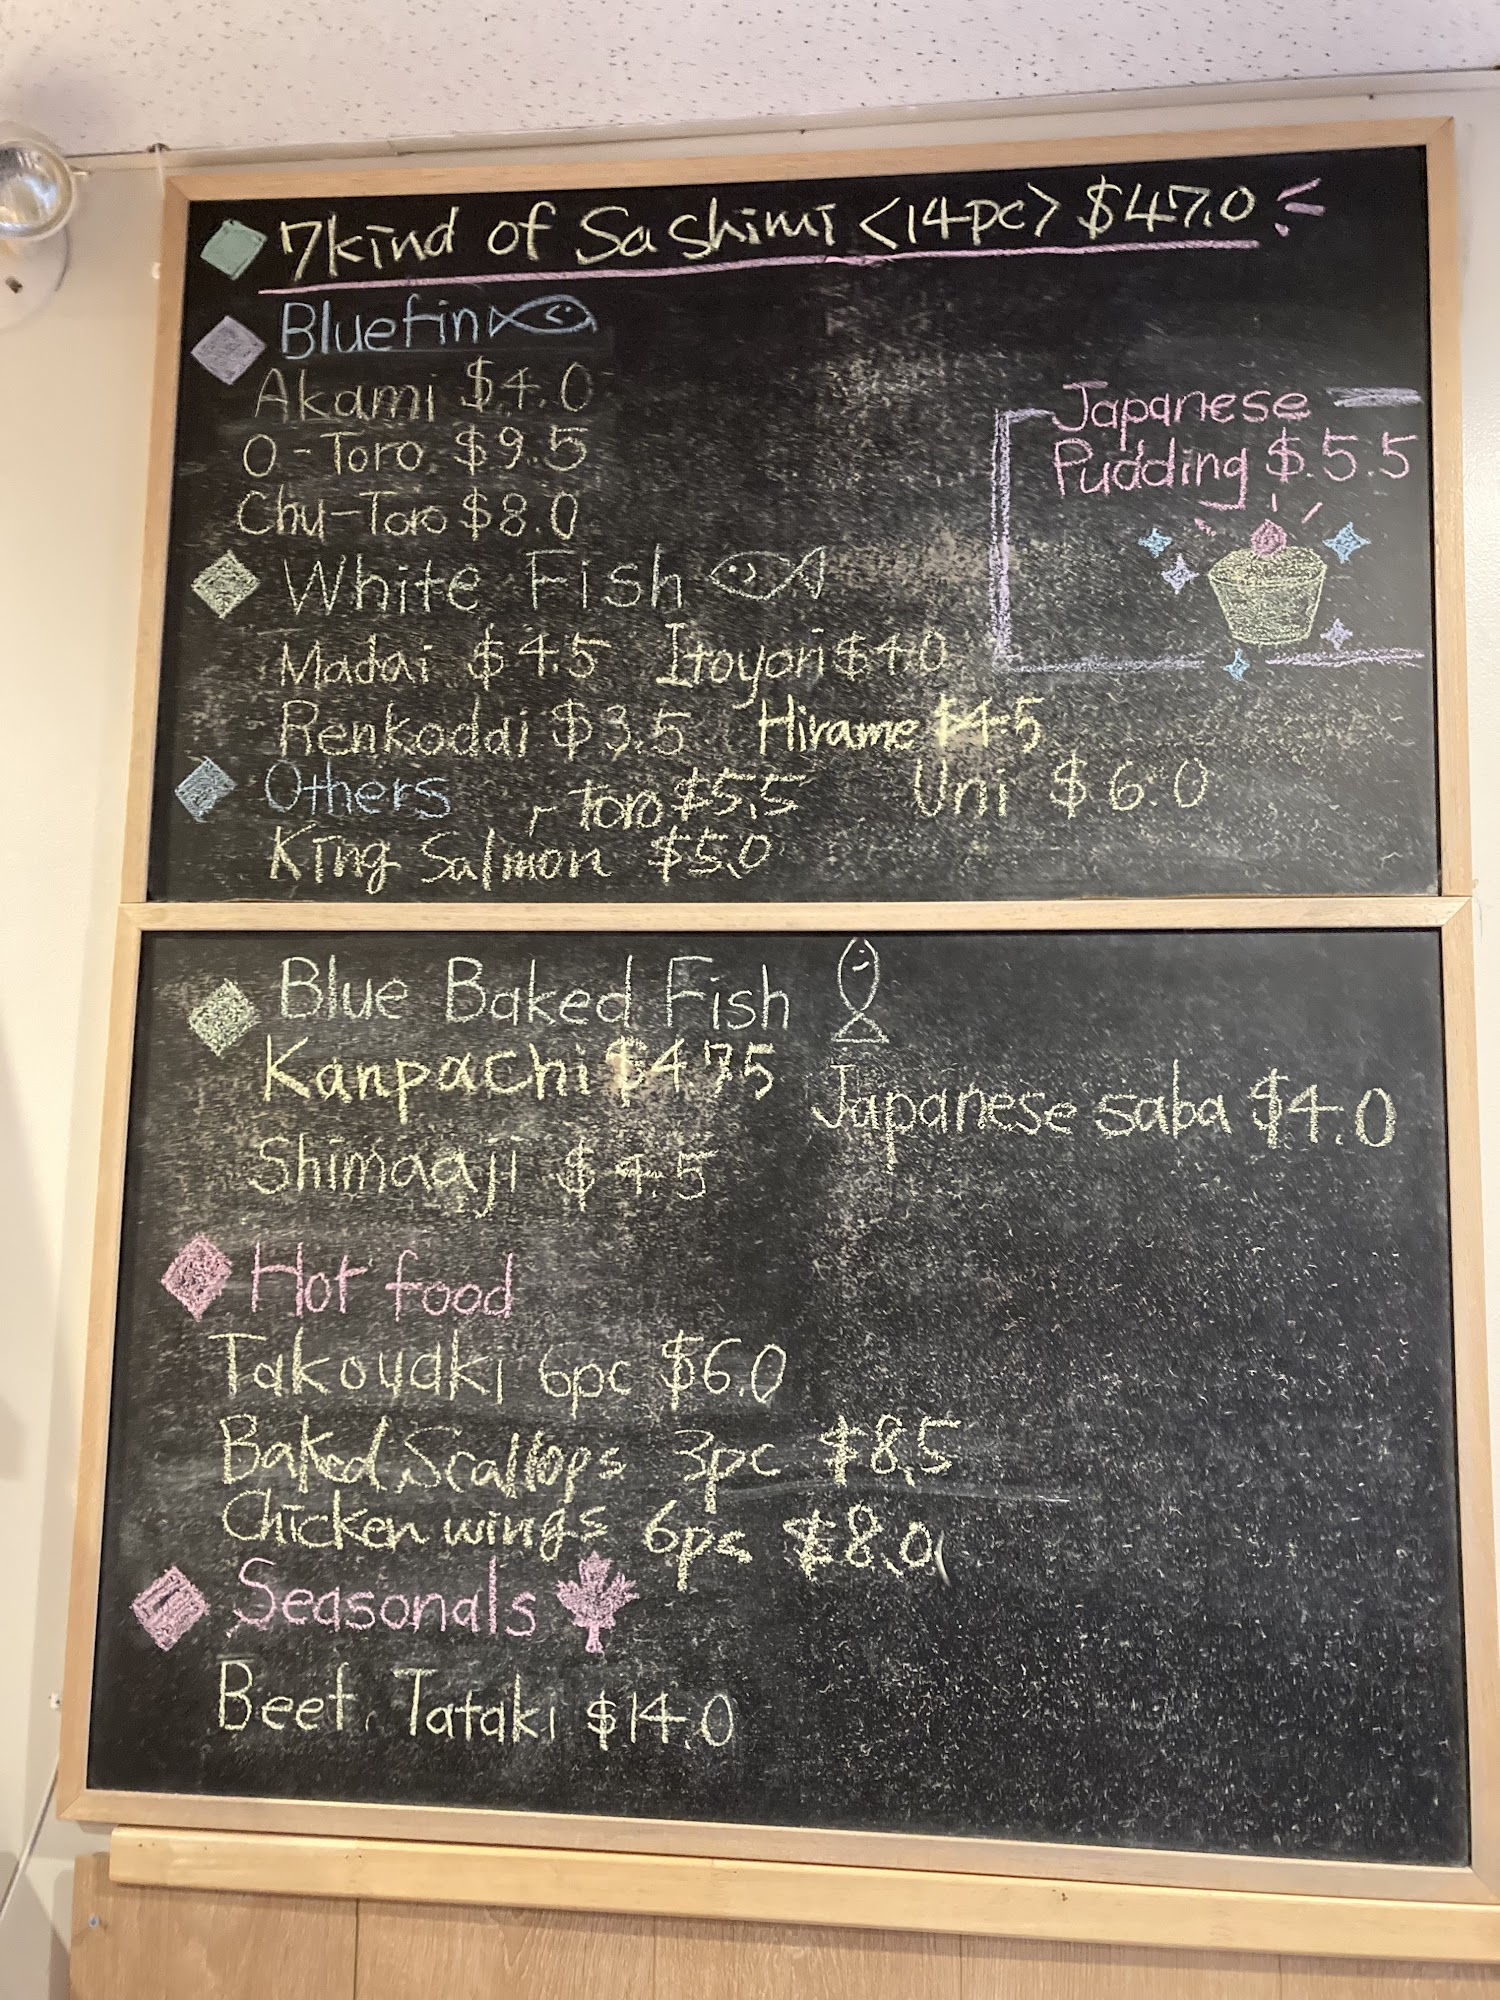 7kind of Sashimi <14pc> $47.0
Bluefin
Akami $4.0
O-Toro $9.5
Chu-Toro $8.0
Japanese
Pudding $5.5
White Fish
Madai $4.5 Itoyori $4.0
Renkodai $3.5 Hirame $4.5
Others Toro $5.5 Uni $6.0
King Salmon $5.0
Blue Baked Fish
Kanpachi $4.75
Japanese saba $4.0
Shimaaji $4.5
Hot food
Takoyaki 6pc $6.0
Baked Scallops 3pc $8.5
Chicken wings 6pc $8.0
Seasonals
Beef Tataki $14.0